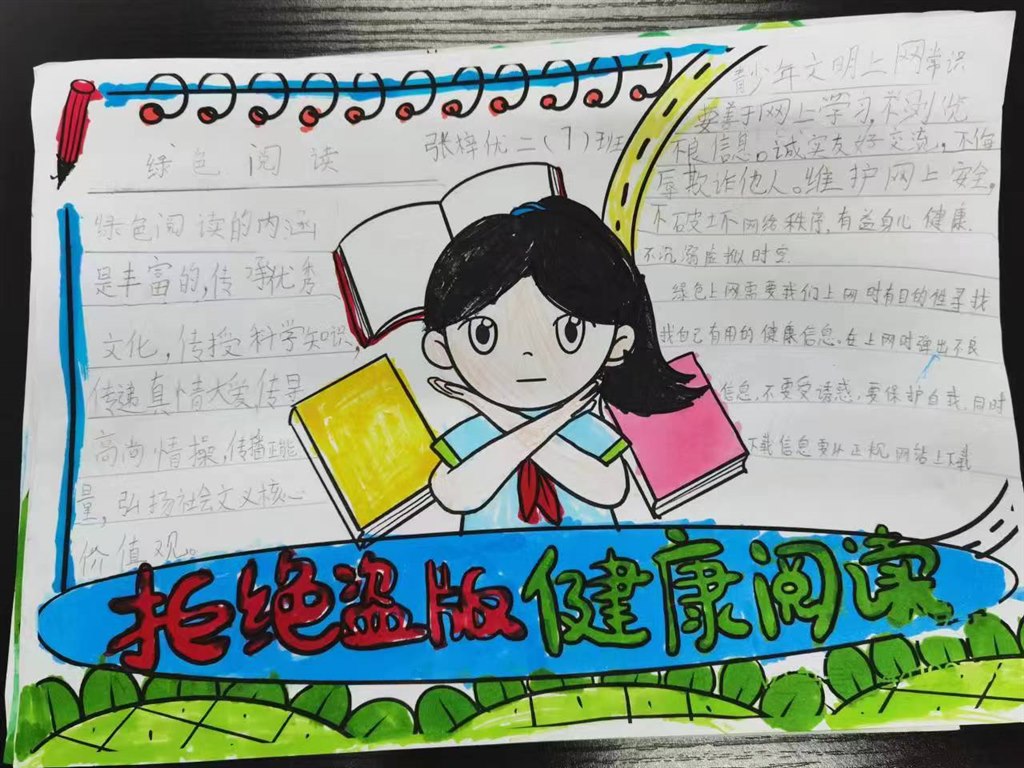 绿色阅读
张梓优二(1)班
绿色阅读的内涵
是丰富的,传承优秀
文化,传授科学知识,
传递真情大爱传寻
高尚情操,传播正能
量,弘扬社会文义核心
价值观。
青少年文明上网常识
要善于网上学习,不浏览
不良信息。诚实友好交流,不侮
辱欺诈他人。维护网上安全,
不破坏网络秩序,有益身心健康.
不沉溺虚拟时空.
绿色上网需要我们上网时有目的性寻找
我自己有用的健康信息。在上网时弹出不良
信息,不要受诱惑,要保护自我,目时
下载信息要从正规网站上下载
拒绝盗版 健康阅读